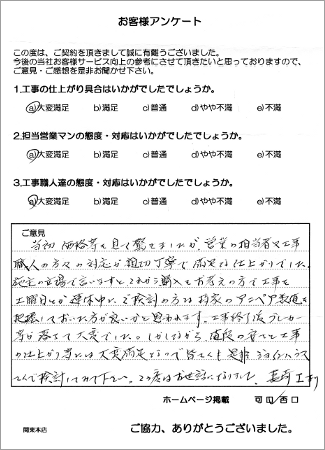 お客様アンケート
この度は、ご契約を頂きまして誠に有難うございました。
今後の当社お客様サービス向上の参考にさせて頂きたいと思っておりますので、
ご意見・ご感想を是非お聞かせ下さい。
1.工事の仕上がり具合はいかがでしたでしょうか。
a)大変満足 b)満足 c)普通 d)やや不満 e)不満
2.担当営業マンの態度・対応はいかがでしたでしょうか。
a)大変満足 b)満足 c)普通 d)やや不満 e)不満
3.工事職人達の態度・対応はいかがでしたでしょうか。
a)大変満足 b)満足 c)普通 d)やや不満 e)不満
ご意見
当初 価格等を見て驚きましたが、営業の担当者や工事
職人の方々の対応が親切丁寧で満足する仕上がりでした。
の立場で言いますと これから購入をお考えの方で工事を
土曜日とか連休中に で検討の方は
しておいた方が良いかと思われます。工事終了後ブレーカー
等が落ちて大変でした。しかしながら、価段の 工事
の仕上がり等には大変満足 ので皆さんも是非
検討してみて下さい。この度はお世話になりました。
ホームページ掲載 可 否
関東本店
ご協力、ありがとうございました。